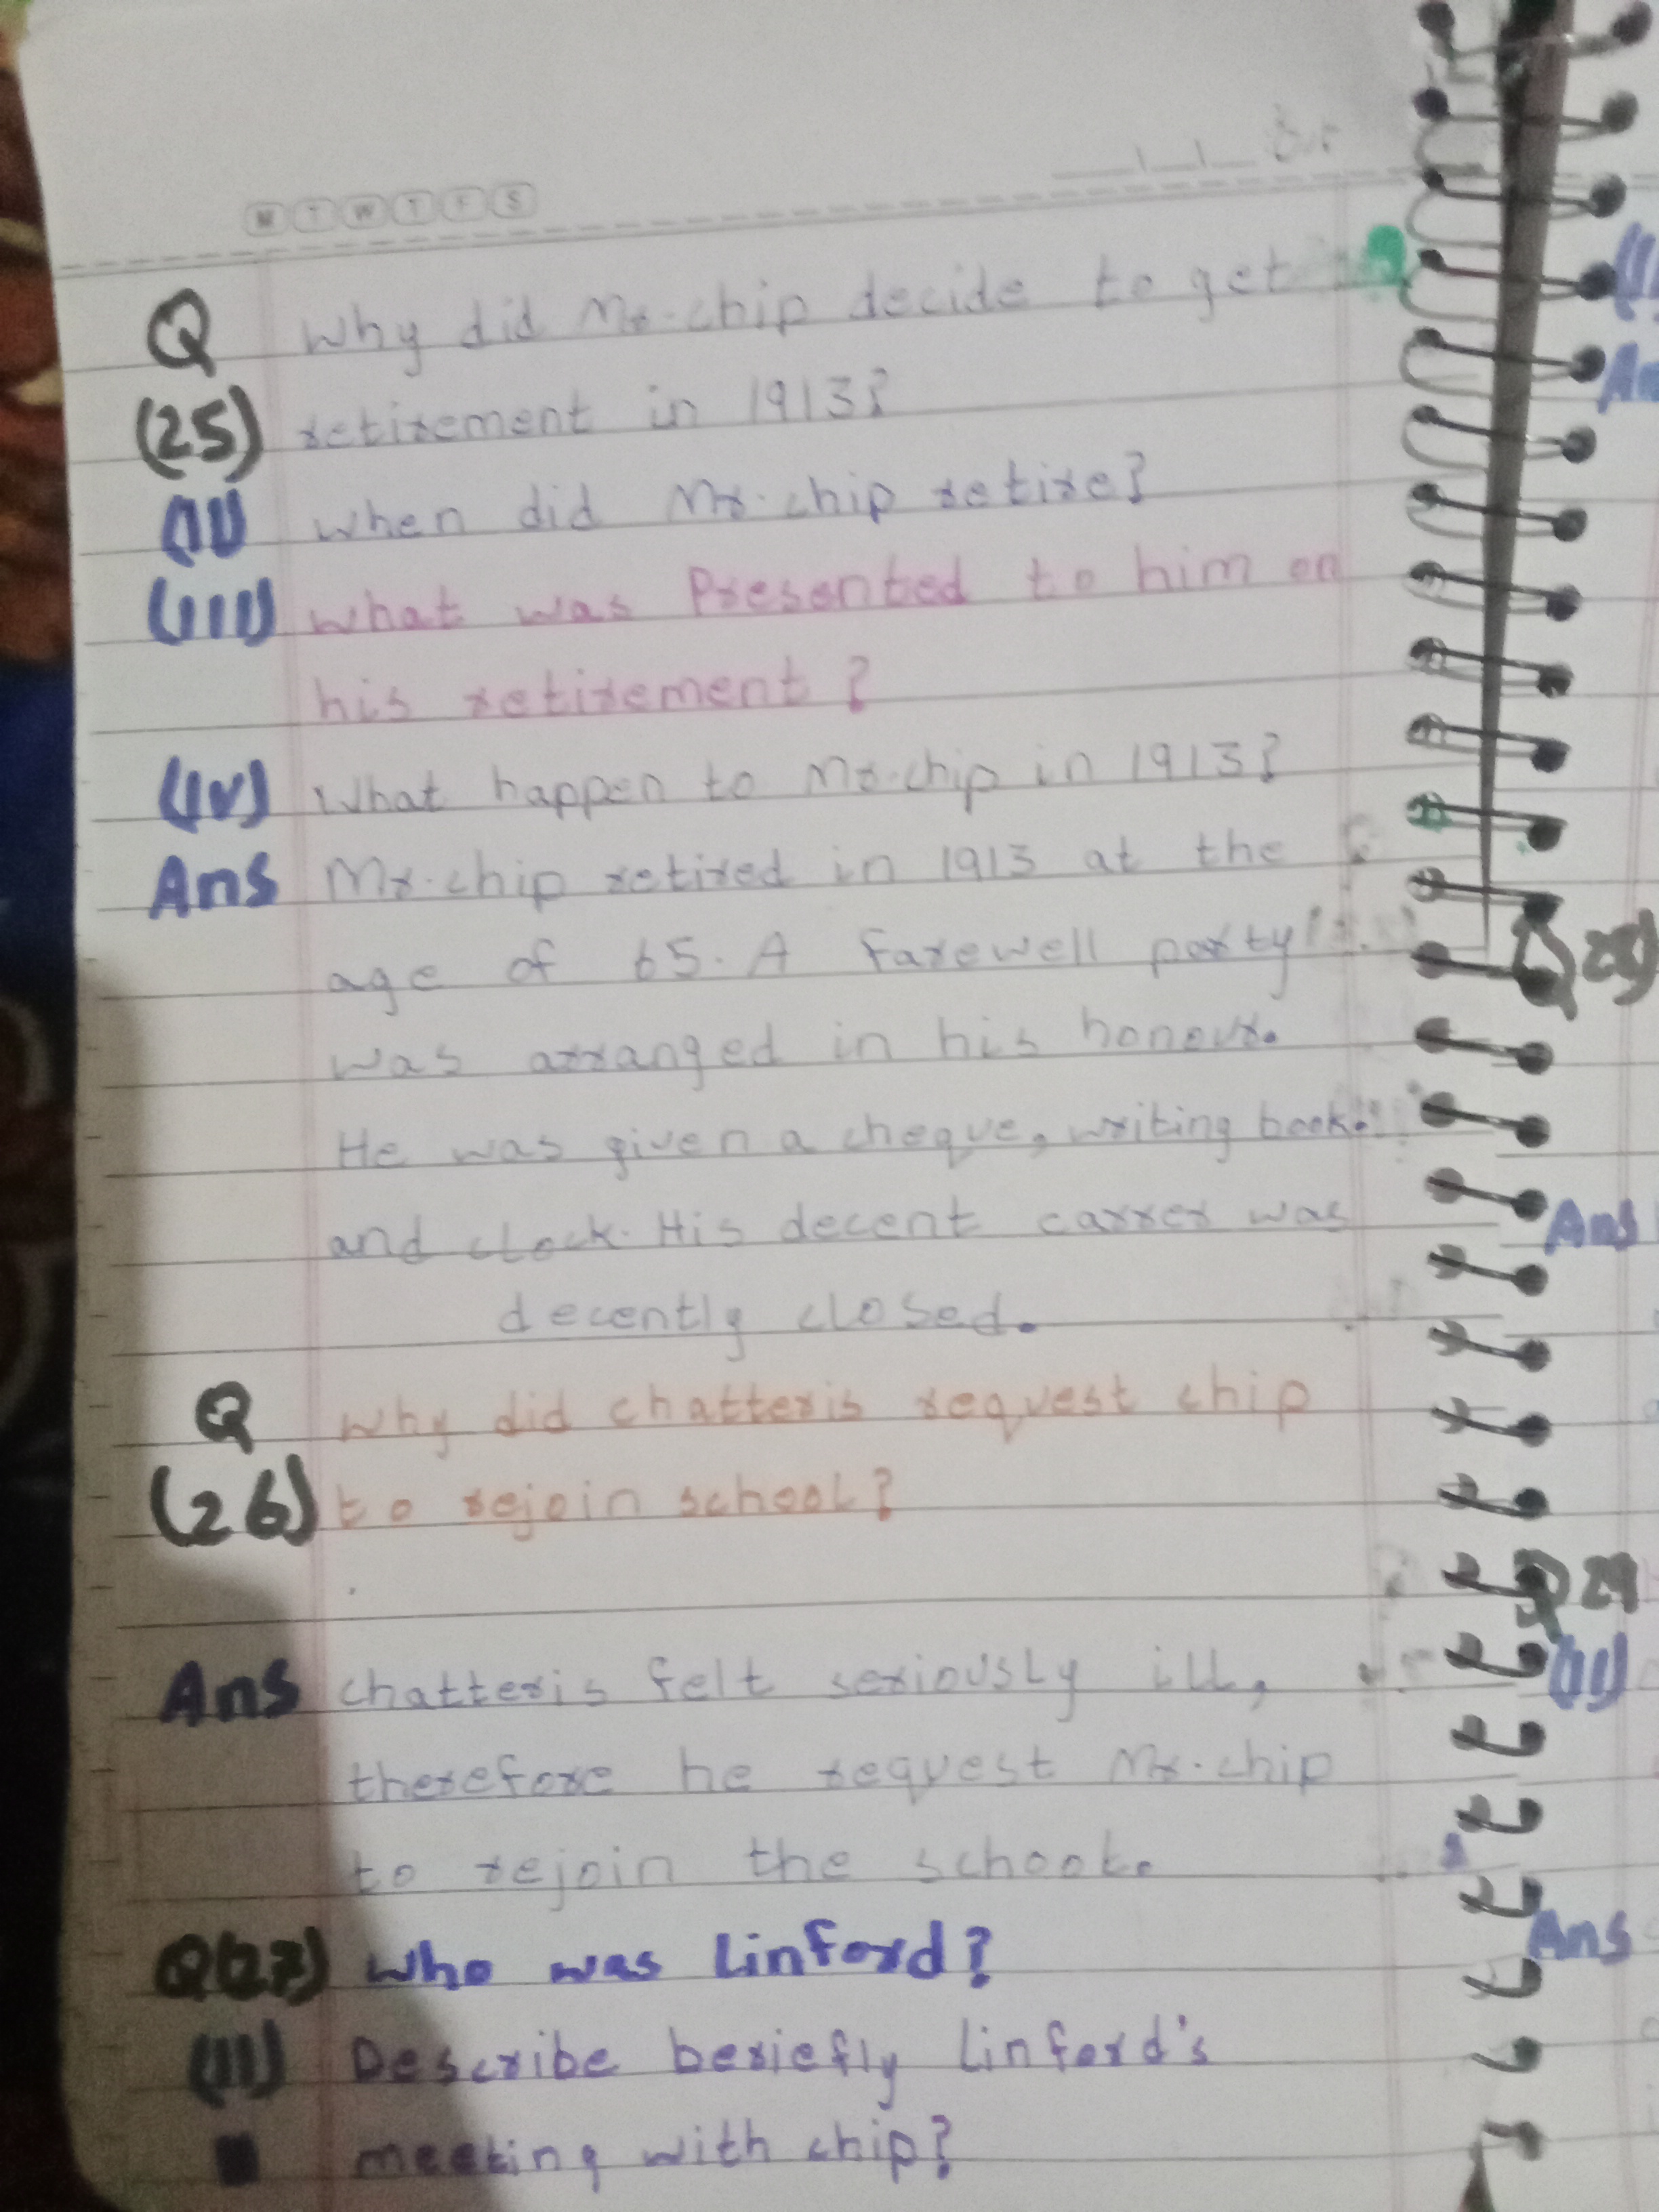 M T W T F S
Q Why did Mr.chip decide to get
(25) retirement in 1913?
(11) when did Mr.chip retire?
(111) what was Presented to him on
his retirement?
(1v) What happen to Mr.chip in 1913?
Ans Mr.chip retired in 1913 at the
age of 65. A farewell party
was arranged in his honour.
He was given a cheque, writing book.
and clock. His decent carrer was
decently closed.
Q Why did chatteris request chip
(26) to rejoin school?
Ans chatteris felt seriously ill,
therefore he request Mr.chip
to rejoin the school.
Q(27) who was Linford?
(11) Describe beriefly Linford's
meeting with chip?
Q 28)
Ans
Q 29
(11)
Ans